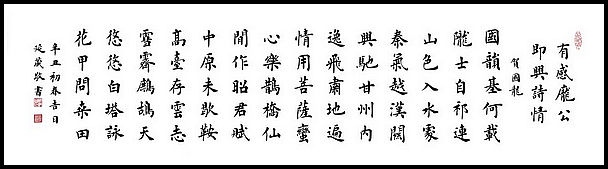 有感龐公
即興詩情
賀國龍
國韻基何載
隴士自祁連
山色入水
秦氣越漢闕
興馳甘州內
逸飛肅地遍
情用菩薩蠻
心樂鵲橋仙
閒作昭君賦
中原未歇鞍
高臺存雲志
雪霽鷓鴣天
悠悠白塔詠
花甲問桑田
辛丑初春吉日
敬書